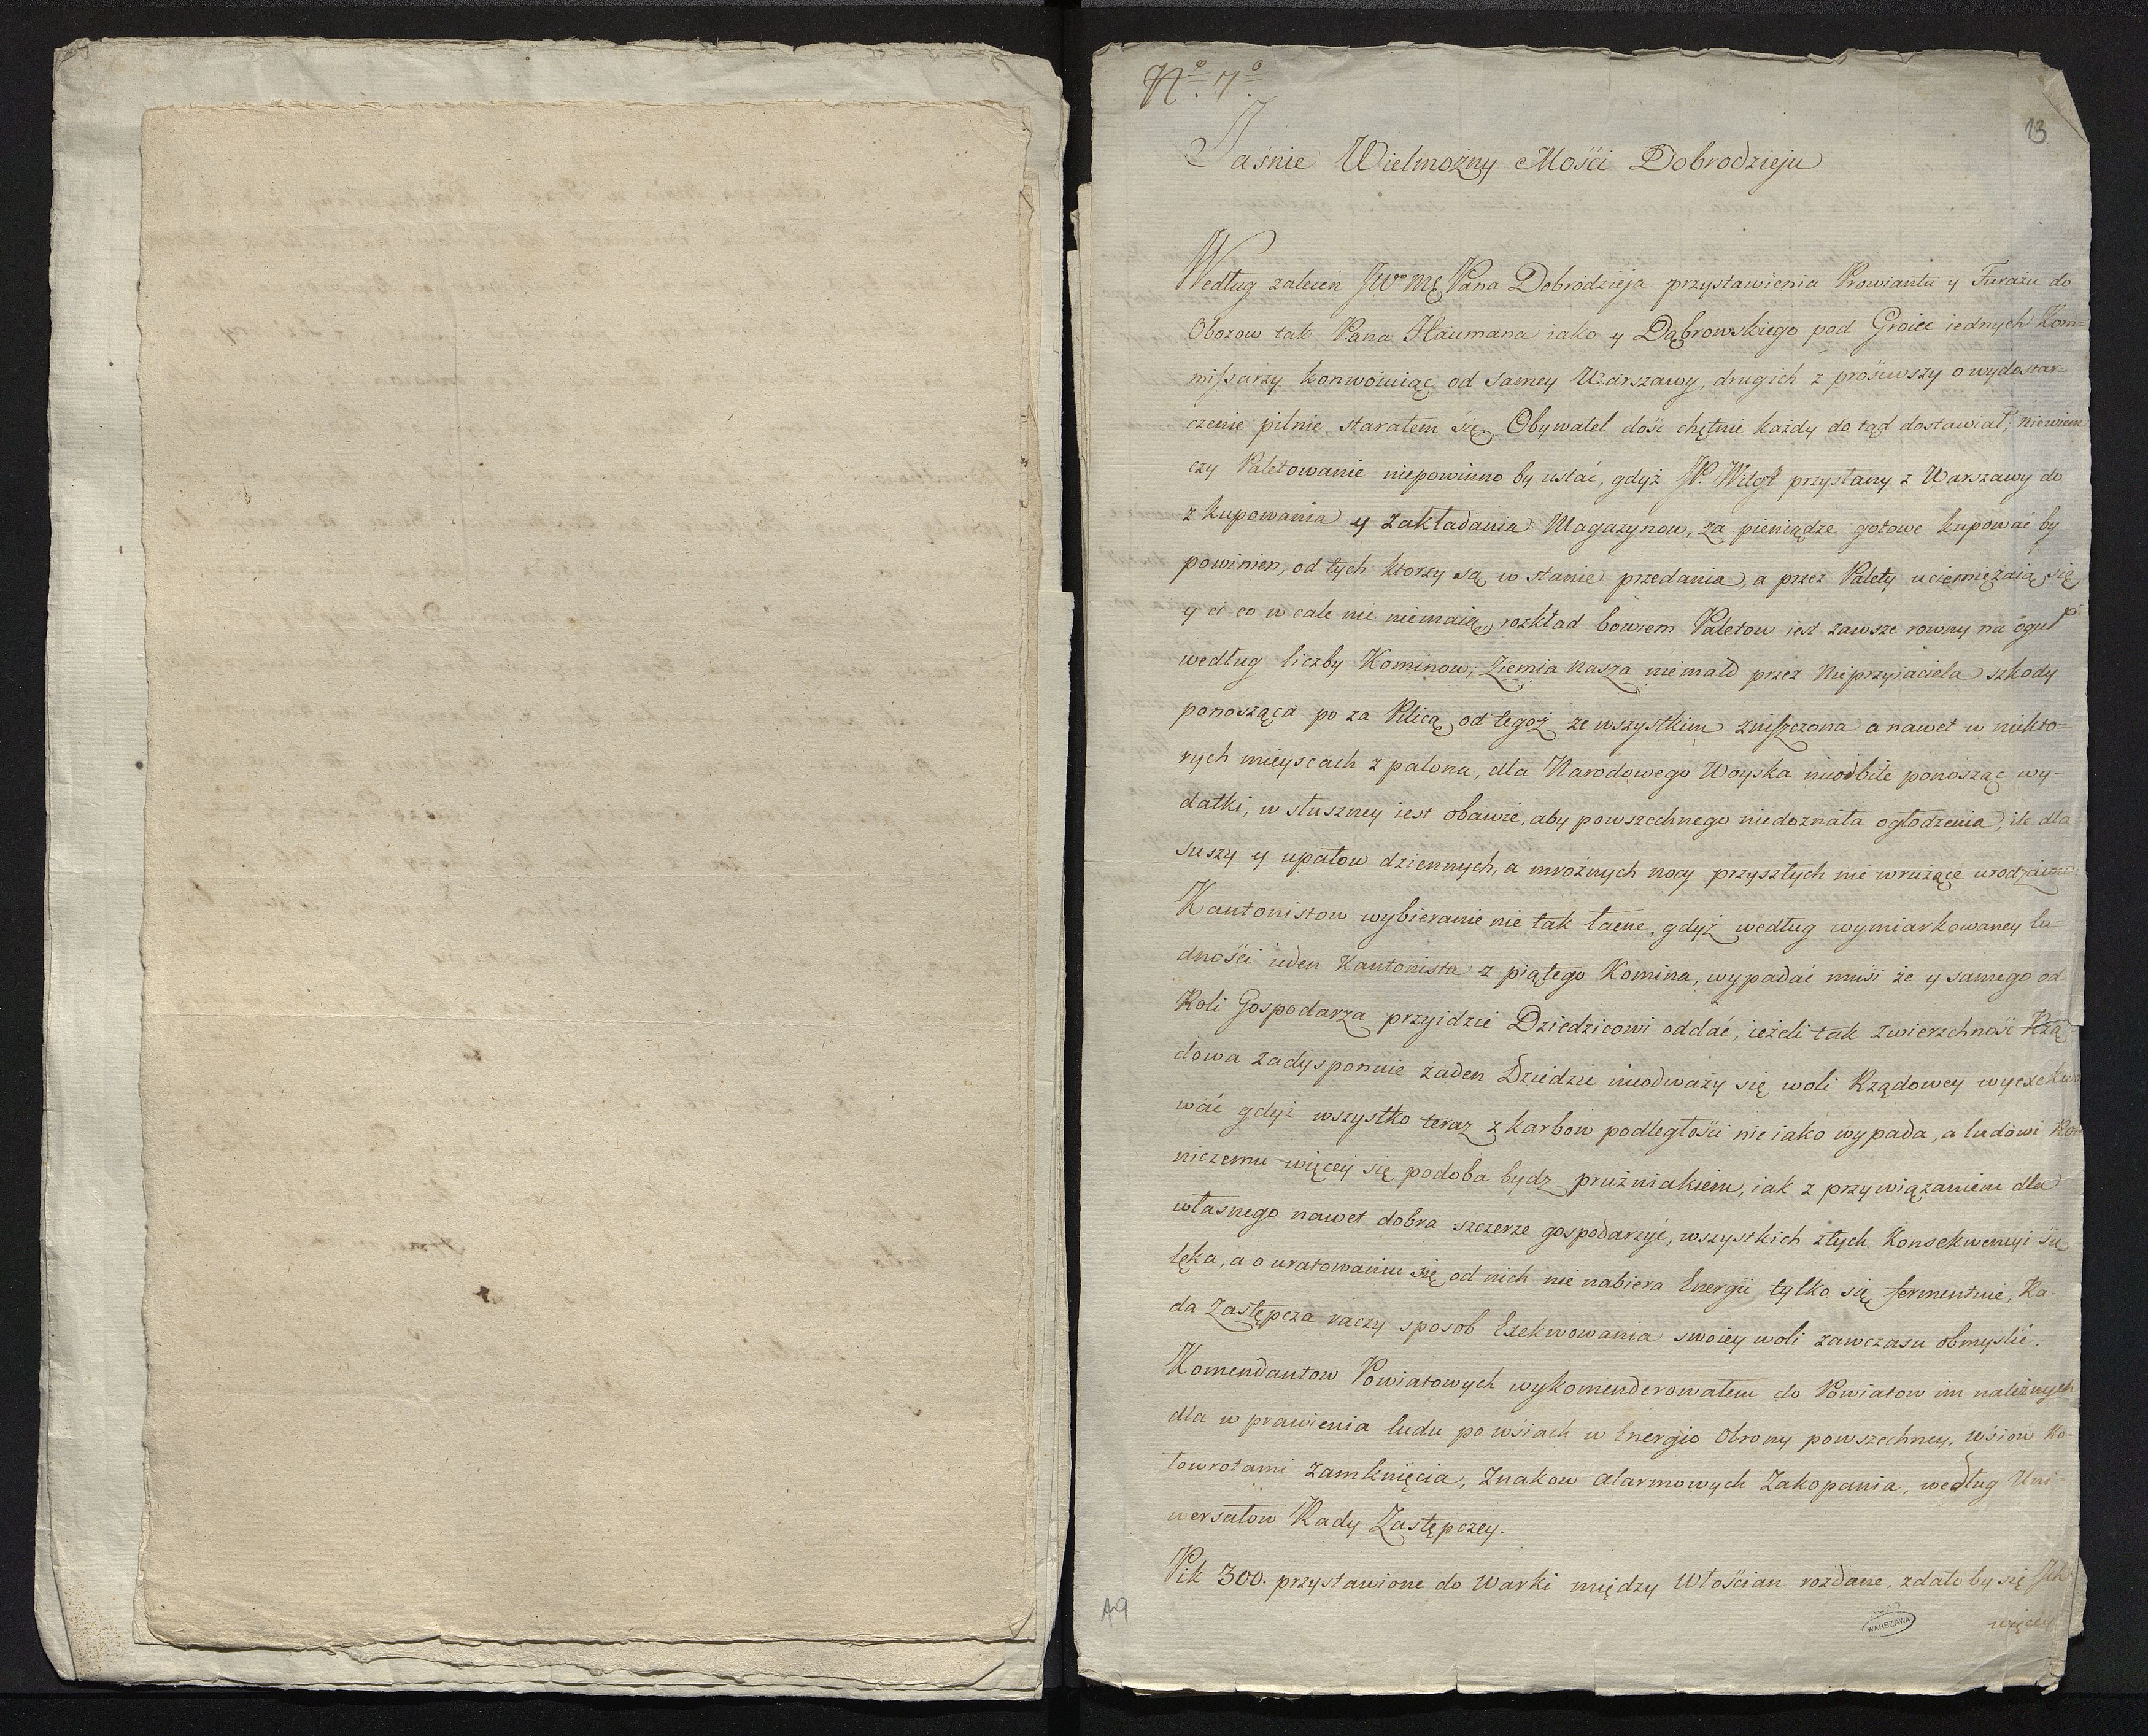 No. 7o.
13
Jaśnie Wielmożny Mości Dobrodzieju
Według zaleceń JWo Mę Pana Dobrodzieja przystawienia Prowiantu y Furażu do
Obozow tak Pana Haumana iako y Dąbrowskiego pod Groiec iednych Kom=
missarzy konwoiuiąc od samey Warszawy, drugich z prosiwszy o wydostar=
czenie pilnie, starałem się, Obywatel dość chętnie każdy do tąd dostawiał; niewiem
czy Paletowanie niepowinno by ustać, gdyż JP. przysłany z Warszawy do
z kupowania y zakładania Magazynow, za pieniądze gotowe kupować by
powinien, od tych ktorzy są w stanie przedania, a przez Palety uciemiężaią się
y ci co w cale nic niemaią, rozkład bowiem Paletow iest zawsze rowny na oguł
według liczby Kominow; Ziemia nasza niemało przez Nieprzyiaciela szkody
ponosząca po za Pilicą od tegoż ze wszystkiem zniszczona a nawet w niekto=
rych mieyscach z palona, dla Narodowego Woyska nieodbite ponosząc wy-
datki, w słuszney iest obawie, aby powszechnego niedoznała ogłodzenia, ile dla
suszy y upałow dziennych, a mroźnych nocy przyszłych nie wrużące urodzaiow
Kantonistow wybieranie nie tak łacne, gdyż według wymiarkowaney lu-
dności ieden Kantonista z piątego Komina, wypadać musi że y samego od
Roli Gospodarza przyidzie Dziedzicowi oddać, ieżeli tak zwierzchność Rzą=
dowa zadysponuie żaden Dziedzic nieodważy się woli Rządowey wyexekwo
wać gdyż wszystko teraz z karbow podległości nie iako wypada, a ludowi Rol
niczemu więcey się podoba bydz prużniakiem, iak z przywiązaniem dla
własnego nawet dobra szczerze gospodarzyć, wszystkich złych Konsekwencyi się
lęka, a o uratowaniu się od nich nie nabiera Energii tylko się fermentuie, Ra-
da Zastępcza raczy sposob Exekwowania swoiey woli zawczasu obmyślić.
Komendantow Powiatowych wykomenderowałem do Powiatow im należnych
dla w prawienia ludu po wsiach w Energio Obrony powszechney, wsiow Ko-
łowrotami zamknięcia, znakow alarmowych Zakopania, według Uni
wersałow Rady Zastępczey.
Pik 300. przystawione do Warki między Włościan rozdane, zdało by się Ich
więcey
A9
WARSZAWA